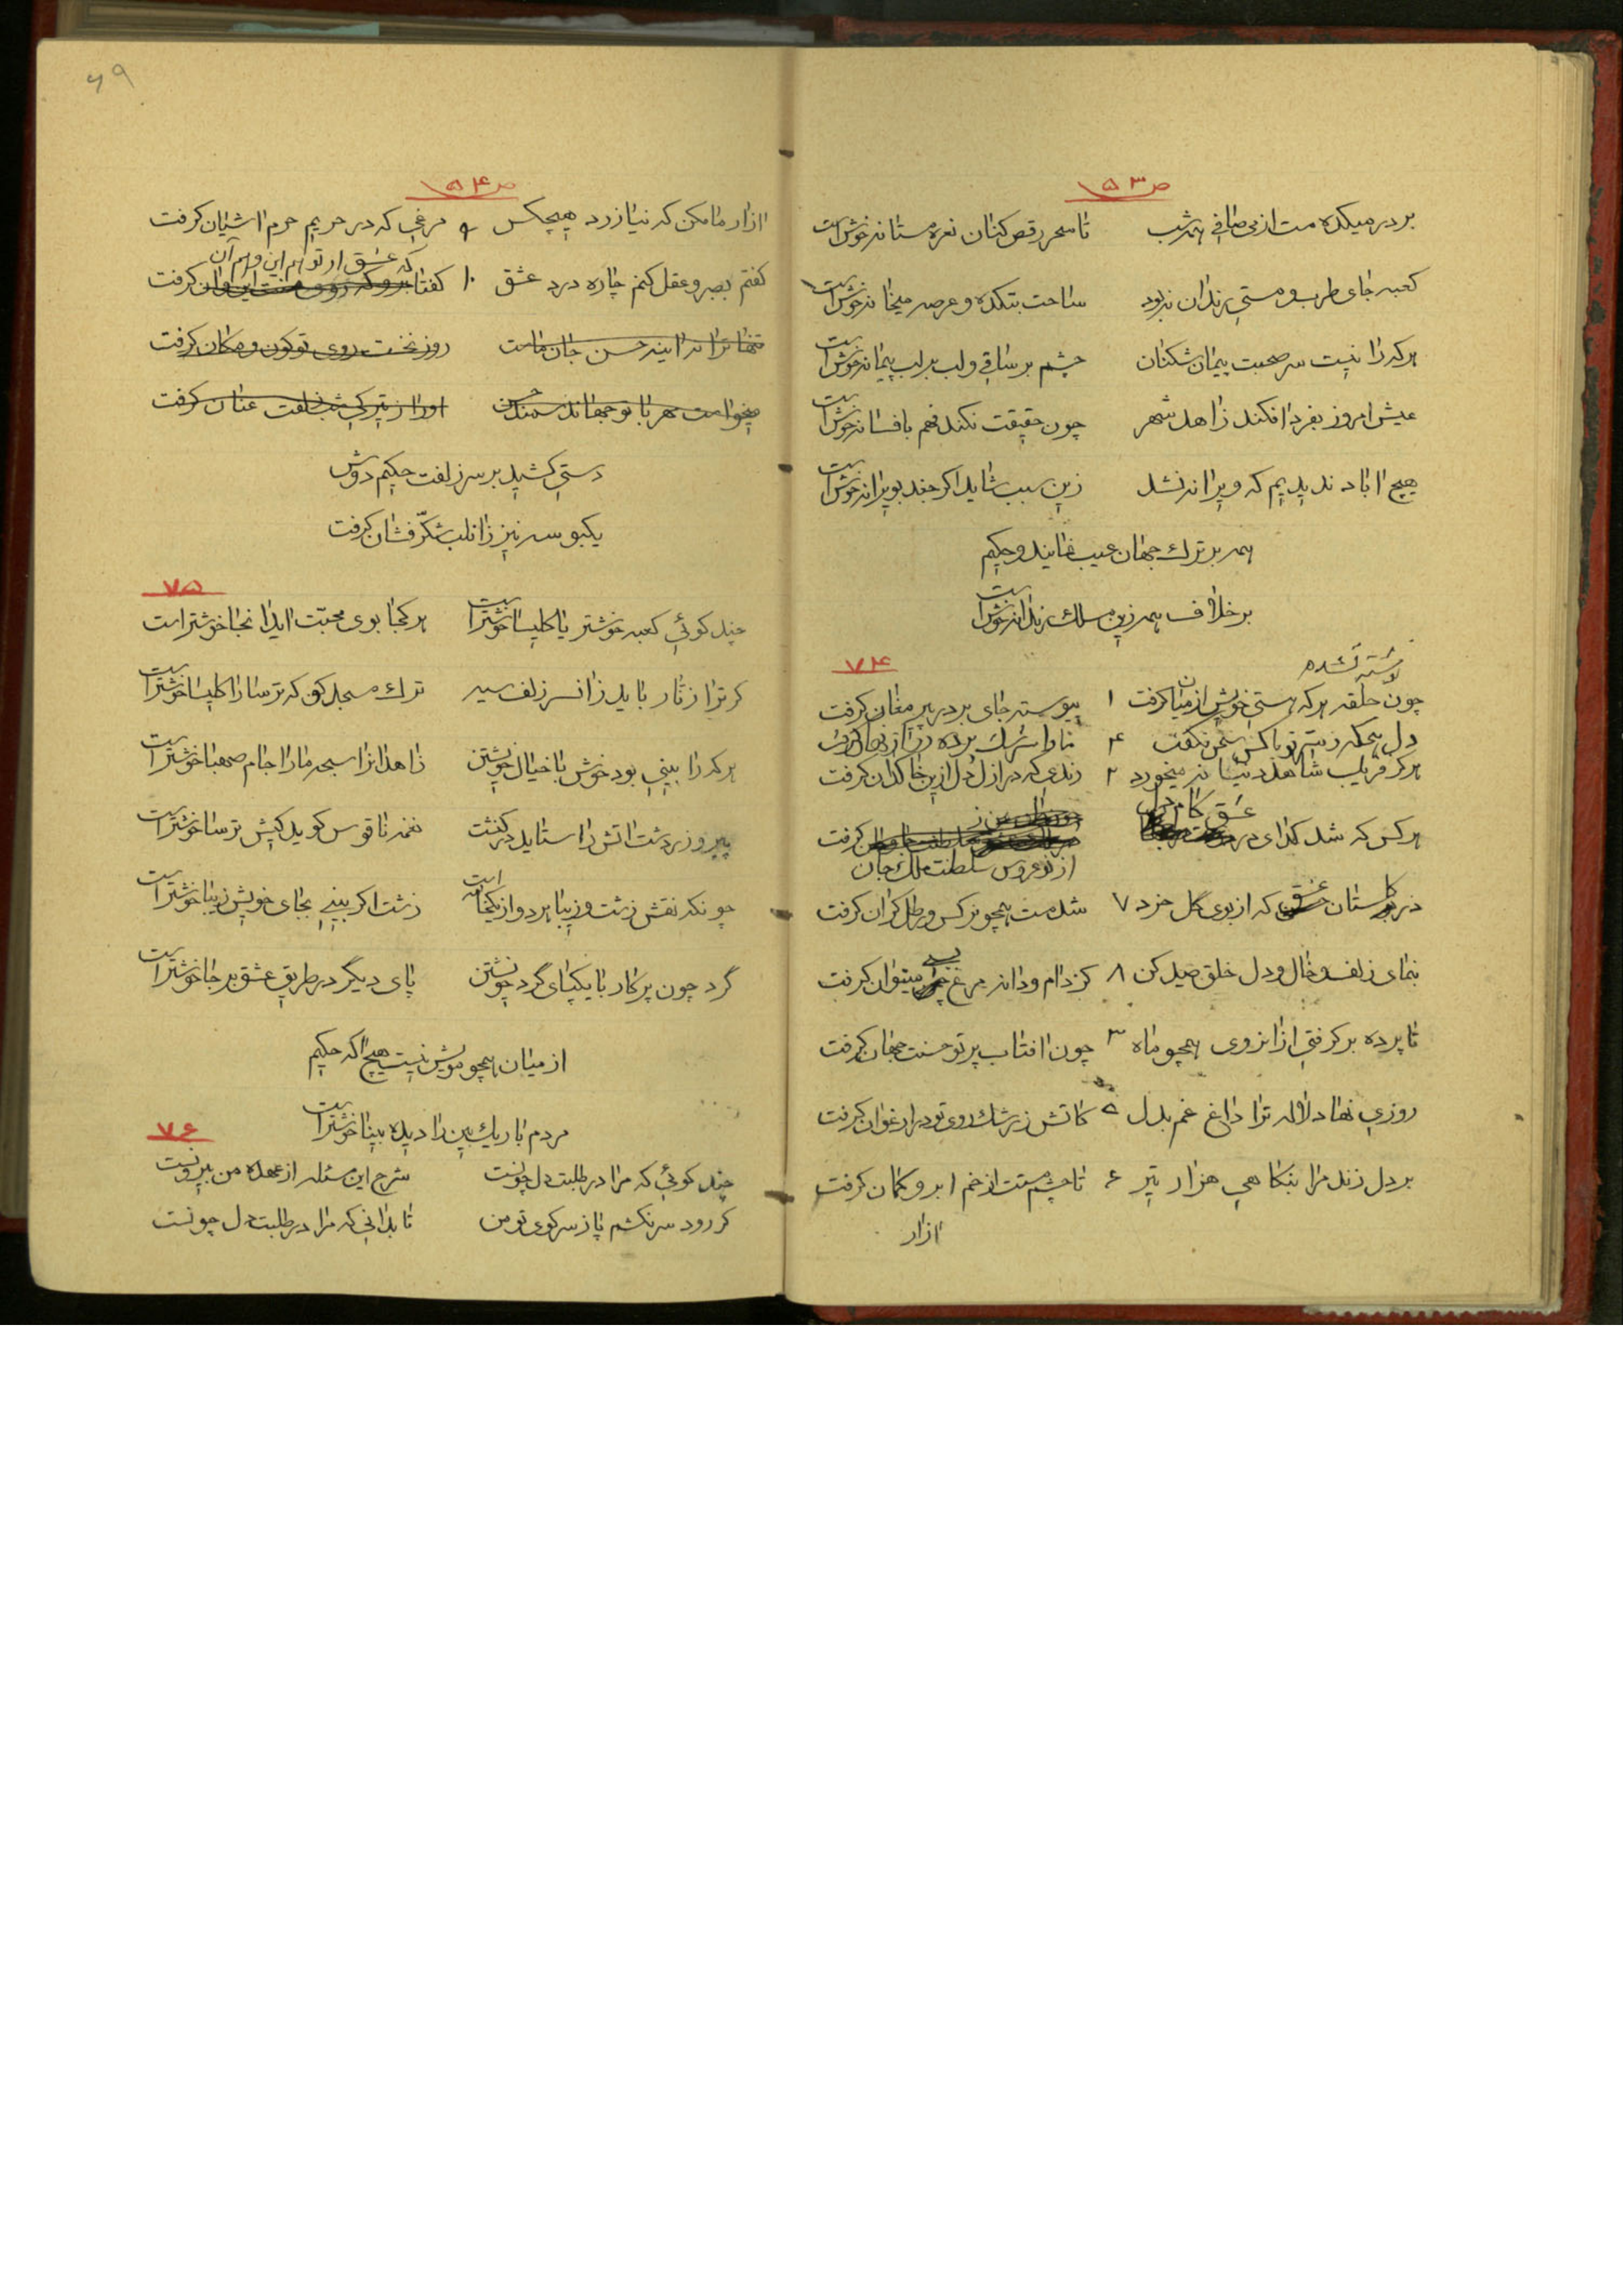 ص ۵۳
بر در میکده مست از می صافی همه شب تا سحر رقص کنان نعره مستانه خوش است
کعبه جای طرب و مستی رندان نبود ساحت بتکده و عرصه میخانه خوش است
هر که را نیست سر صحبت پیمان شکنان چشم بر ساقی و لب بر لب پیمانه خوش است
عیش امروز بفردا فکند زاهد شهر چون حقیقت نکند فهم بافسانه خوش است
هیچ آباد ندیدیم که ویرانه نشد زین سبب شاید اگر جغد بویرانه خوش است
همه بر ترک جهان عیب نمایند و حکیم
بر خلاف همه زین مسلک رندانه خوش است
۷۴
نشده
چون حلقه هر که هستی خویش از میان گرفت ۱ پیوسته جای بر در پیر مغان گرفت
دل همکه ز با کس سخن نگفت ۴ تا پرده راز نهان گرفت
هرگز فریب شاهد دنیا نمیخورد ۲ رندی که در ازل دل ازین خاکدان گرفت
عشق کام دل
هر کس که شد گدای در گرفت
از نو عروس سلطنت ملک جان
در گلستان عشق که از بوی گل خرد ۷ شد مست همچو نرگس و رطل گران گرفت
بنمای زلف و خال و دل خلق صید کن ۸ کز دام و دانه مرغ بسی میتوان گرفت
تا پرده بر گرفتی از آنروی همچو ماه ۳ چون آفتاب پرتو حسنت جهان گرفت
روزی نهاد لاله ترا داغ غم بدل ۵ کاتش ز رشک روی تو در ارغوان گرفت
بر دل زند مرا بنگاهی هزار تیر ۶ تا چشم مستت از خم ابرو کمان گرفت
آزار
۶۹
ص ۵۴
آزار ما مکن که نیازرد هیچکس ۹ مرغی که در حریم حرم آشیان گرفت
که عشق ار تو هم این و هم آن
گفتم بصبر و عقل کنم چاره درد عشق ۱۰ گفتا برو که گرفت
تنها ترا نه آینه حسن جان ماست روز نخست روی تو کون و مکان گرفت
میخواست مهر با تو جهاند سمند حسن او را ز تیرگی شب زلفت عنان گرفت
دستی کشید بر سر زلفت حکیم دوش
یکبوسه نیز زان لب شکّر فشان گرفت
۷۵
چند گوئی کعبه خوشتر یا کلیسا خوشتر است هر کجا بوی محبّت آید آنجا خوشتر است
گر ترا زنار باید زان سر زلف سیه ترک مسجد گو که ترسا را کلیسا خوشتر است
هر که را بینی بود خوش با خیال خویشتن زاهدانرا سبحه ما را جام صهبا خوشتر است
پیرو زردشت آتش را ستاید در کنشت نغمه ناقوس گوید کیش ترسا خوشتر است
چونکه نقش زشت و زیبا هر دو از یکخامه است زشت اگر بینی بجای خویش زیبا خوشتر است
گرد چون پرگار با یکپای گرد خویشتن پای دیگر در طریق عشق بر جا خوشتر است
از میان همچو مویش نیست هیچ آگه حکیم
مردم باریک بین را دیده بینا خوشتر است
۷۶
چند گوئی که مرا در طلبت دل چونست شرح این مسئله از عهده من بیرونست
گر رود سر نکشم پا ز سر کوی تو من تا بدانی که مرا در طلبت دل چونست